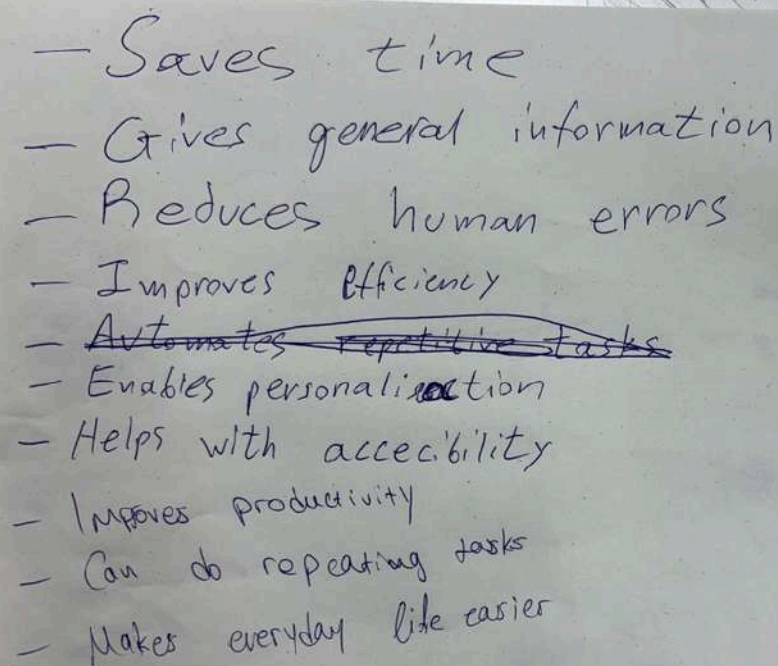 - Saves time
- Gives general information
- Reduces human errors
- Improves efficiency
- Automates repetitive tasks
- Enables personalisation
- Helps with accecibility
- Improves productivity
- Can do repeating tasks
- Makes everyday life easier